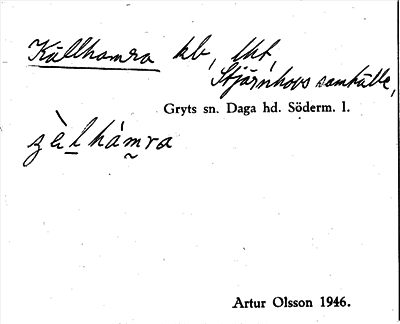 Källhamra hb, lht,
Stjärnhovs samhälle,
Gryts sn. Daga hd. Söderm. l.
Artur Olsson 1946.